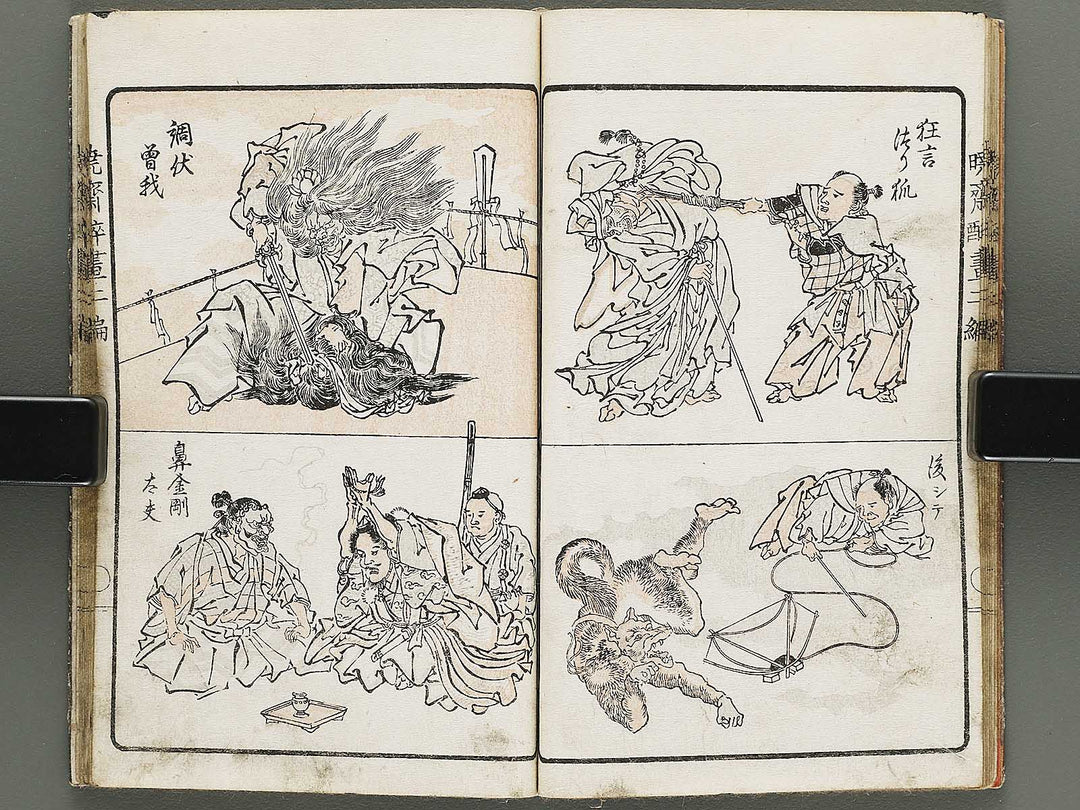 狂言
法り狐
後シテ
調伏
曽我
鼻金剛
太夫
暁斎酔画二編
暁斎酔画二編